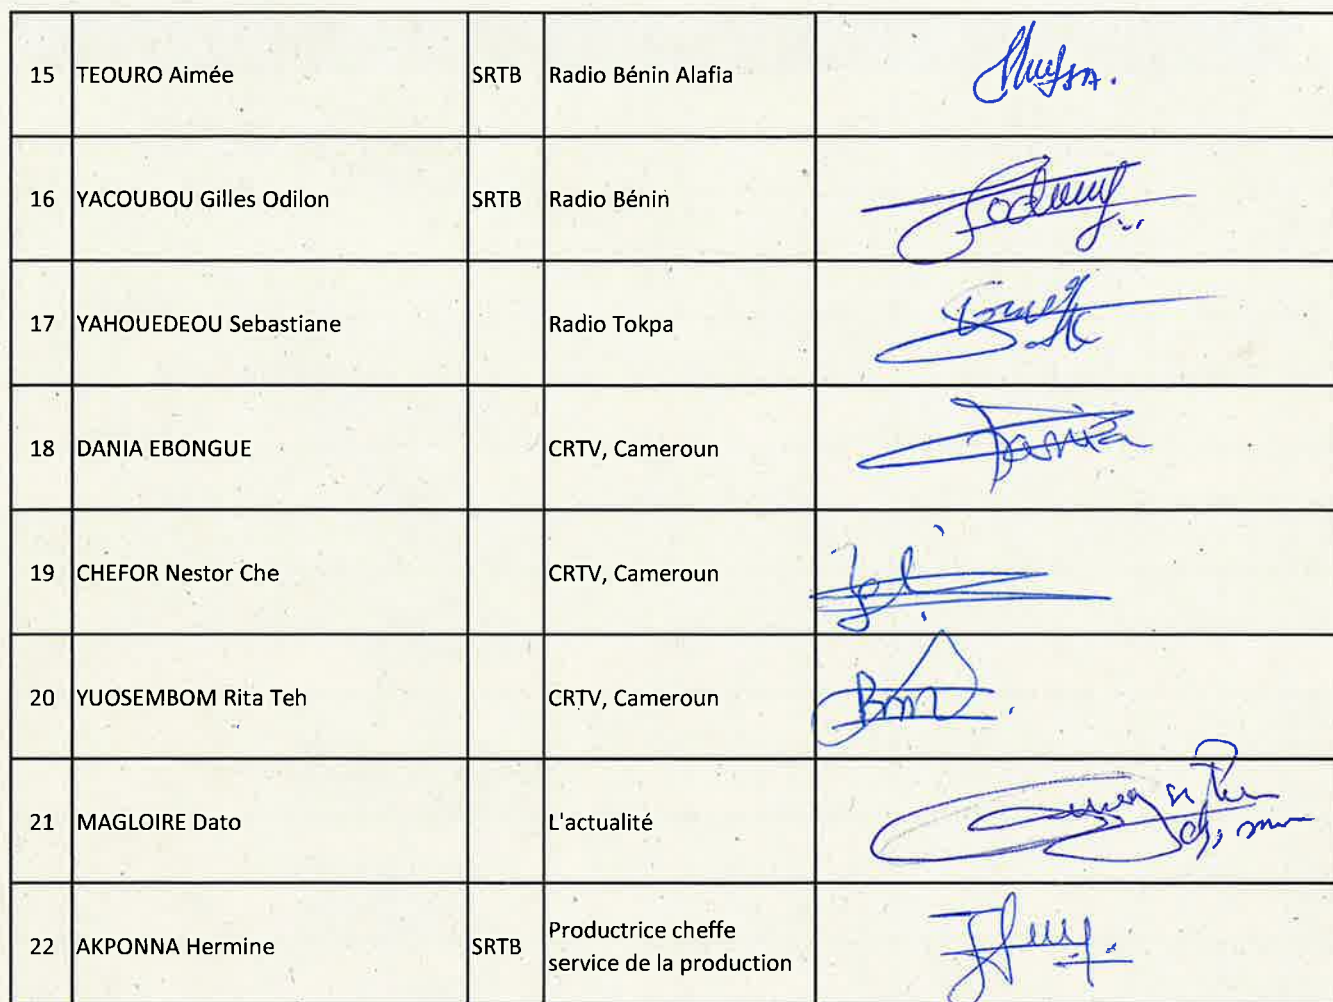 15 TEOURO Aimée SRTB Radio Bénin Alafia
16 YACOUBOU Gilles Odilon SRTB Radio Bénin
17 YAHOUEDEOU Sebastiane Radio Tokpa
18 DANIA EBONGUE CRTV, Cameroun
19 CHEFOR Nestor Che CRTV, Cameroun
20 YUOSEMBOM Rita Teh CRTV, Cameroun
21 MAGLOIRE Dato L'actualité
22 AKPONNA Hermine SRTB Productrice cheffe
service de la production